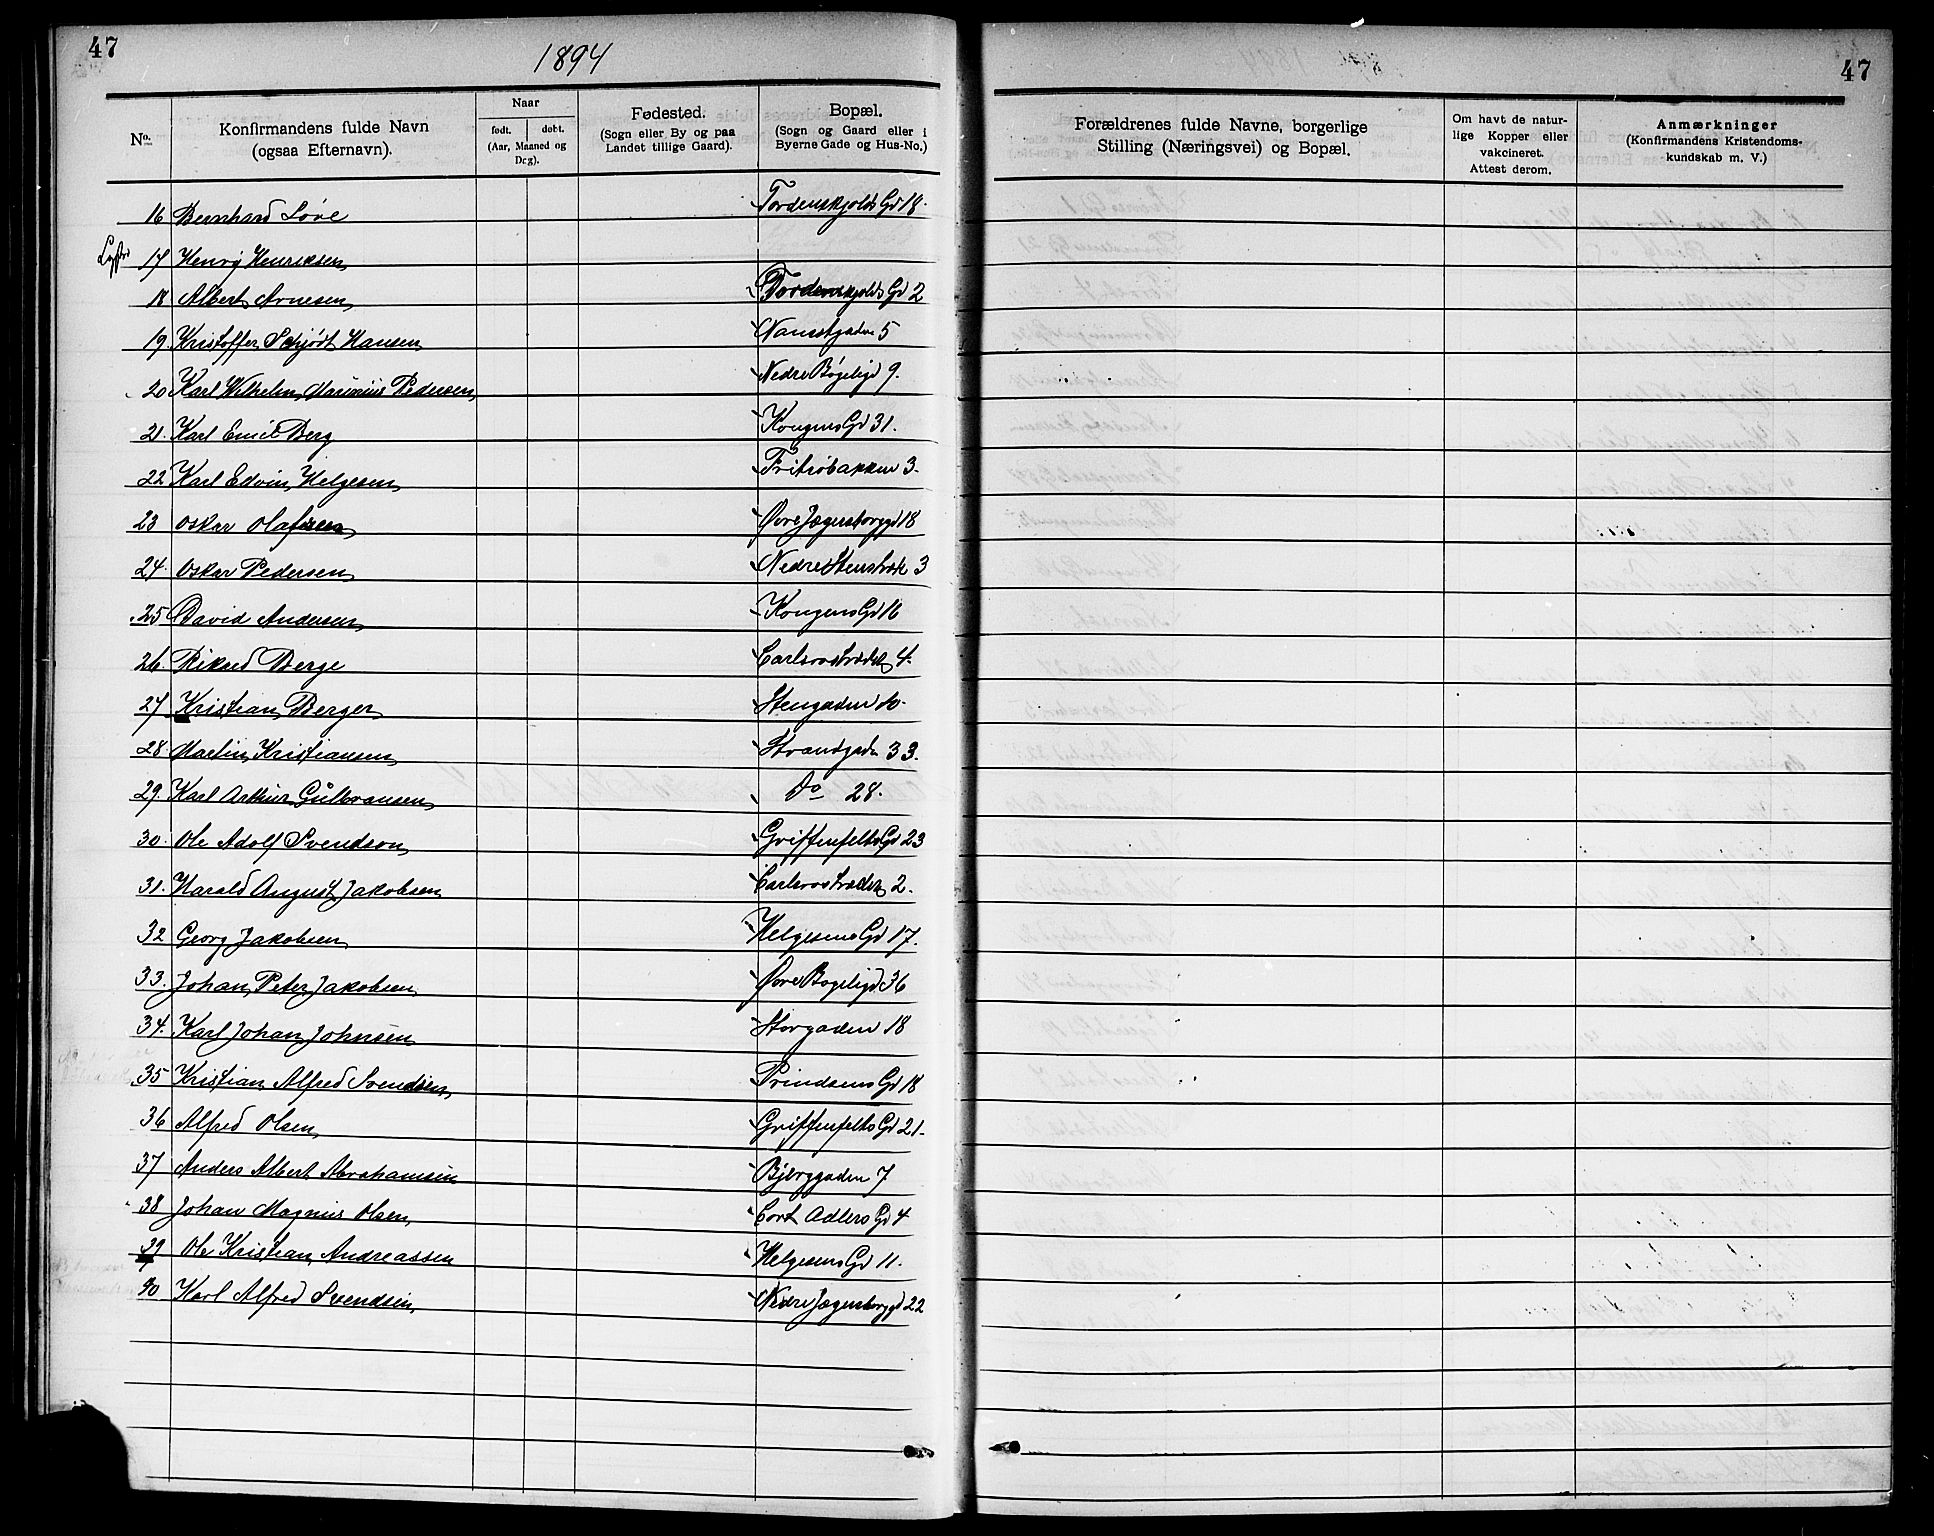 47
1894
47
No.
Konfirmandens fulde Navn
(ogsaa Efternavn).
Naar
født. døbt.
(Aar, Maaned og
Dag).
Fødested.
(Sogn eller By og paa
Landet tillige Gaard).
Bopæl.
(Sogn og Gaard eller i
Byerne Gade og Hus-No.)
Forældrenes fulde Navne, borgerlige
Stilling (Næringsvei) og Bopæl.
Om havt de natur-
lige Kopper eller
vakcineret.
Attest derom.
Anmærkninger
(Konfirmandens Kristendoms-
kundskab m. V.)
16 Bernhard Løve Tordenskjolds Gd 18.
17 Henry Henriksen
18 Albert Arnesen Tordenskjolds Gd 2
19. Kristoffer Schjødt Hansen Nansetgaden 5
20 Karl Wilhelm Marinius Pedersen Nedre Bøgeligd 9.
21. Karl Emil Berg Kongens Gd 31.
22 Karl Edvin Helgesen Fritzøbakken 3.
23 Oskar Olafsen Øvre Jegersborggd 18
24. Oskar Pedersen Nedre Stenstræk 3
25 David Andersen Kongens Gd 16
26. Rikard Berge Carlsrostrædet 4.
27 Kristian Berger Stengaden 10.
28. Martin Kristiansen Strandgaden 33.
29. Karl Arthur Gulbransen Do 28.
30. Ole Adolf Svendson Griffenfelts Gd 23
31. Harald August Jakobsen Carlsrostrædet 2.
32 Georg Jakobsen Helgesens Gd 17.
33. Johan Peter Jakobsen Øvre Bøgeligd 36
34. Karl Johan Johnsen Storgaden 18
35 Kristian Alfred Svendsen Prindsens Gd 18
36 Alfred Olsen Griffenfelts Gd 21.
37 Anders Albert Abrahamsen Bjerggaden 7
38 Johan Magnus Olsen Cort Adlers Gd 4
39 Ole Kristian Andreassen Helgesens Gd 11.
40 Karl Alfred Svendsen Nedre Jegersborggd 22